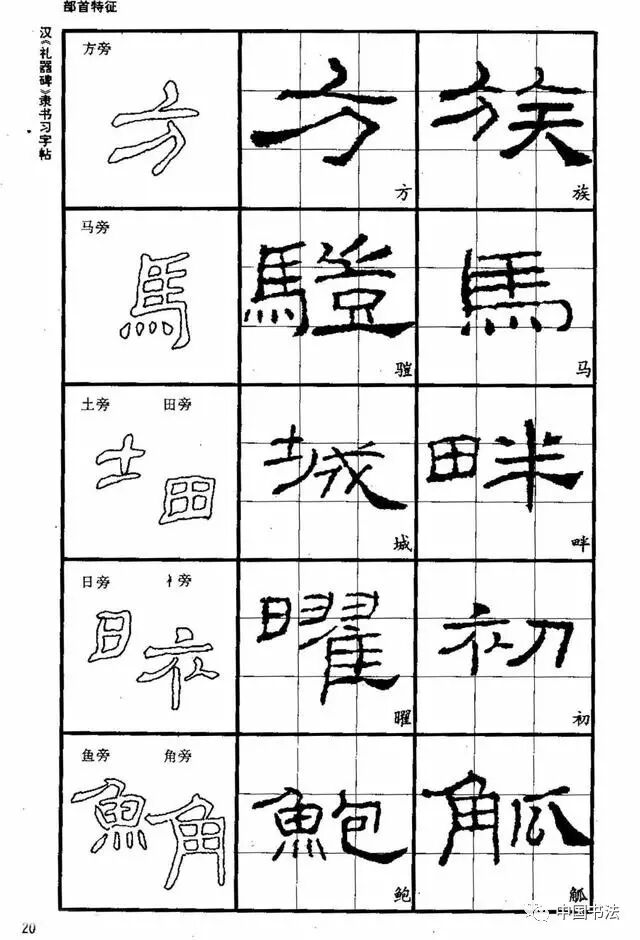 部首特征
汉《礼器碑》隶书习字帖
方旁
方 方 族
方 族
马旁
馬 馬
马
土旁 田旁
土 田 城 畔
城 畔
日旁 衤旁
日 衤 曜 初
曜 初
鱼旁 角旁
魚 角 鮑 觚
鲍 觚
20
中国书法